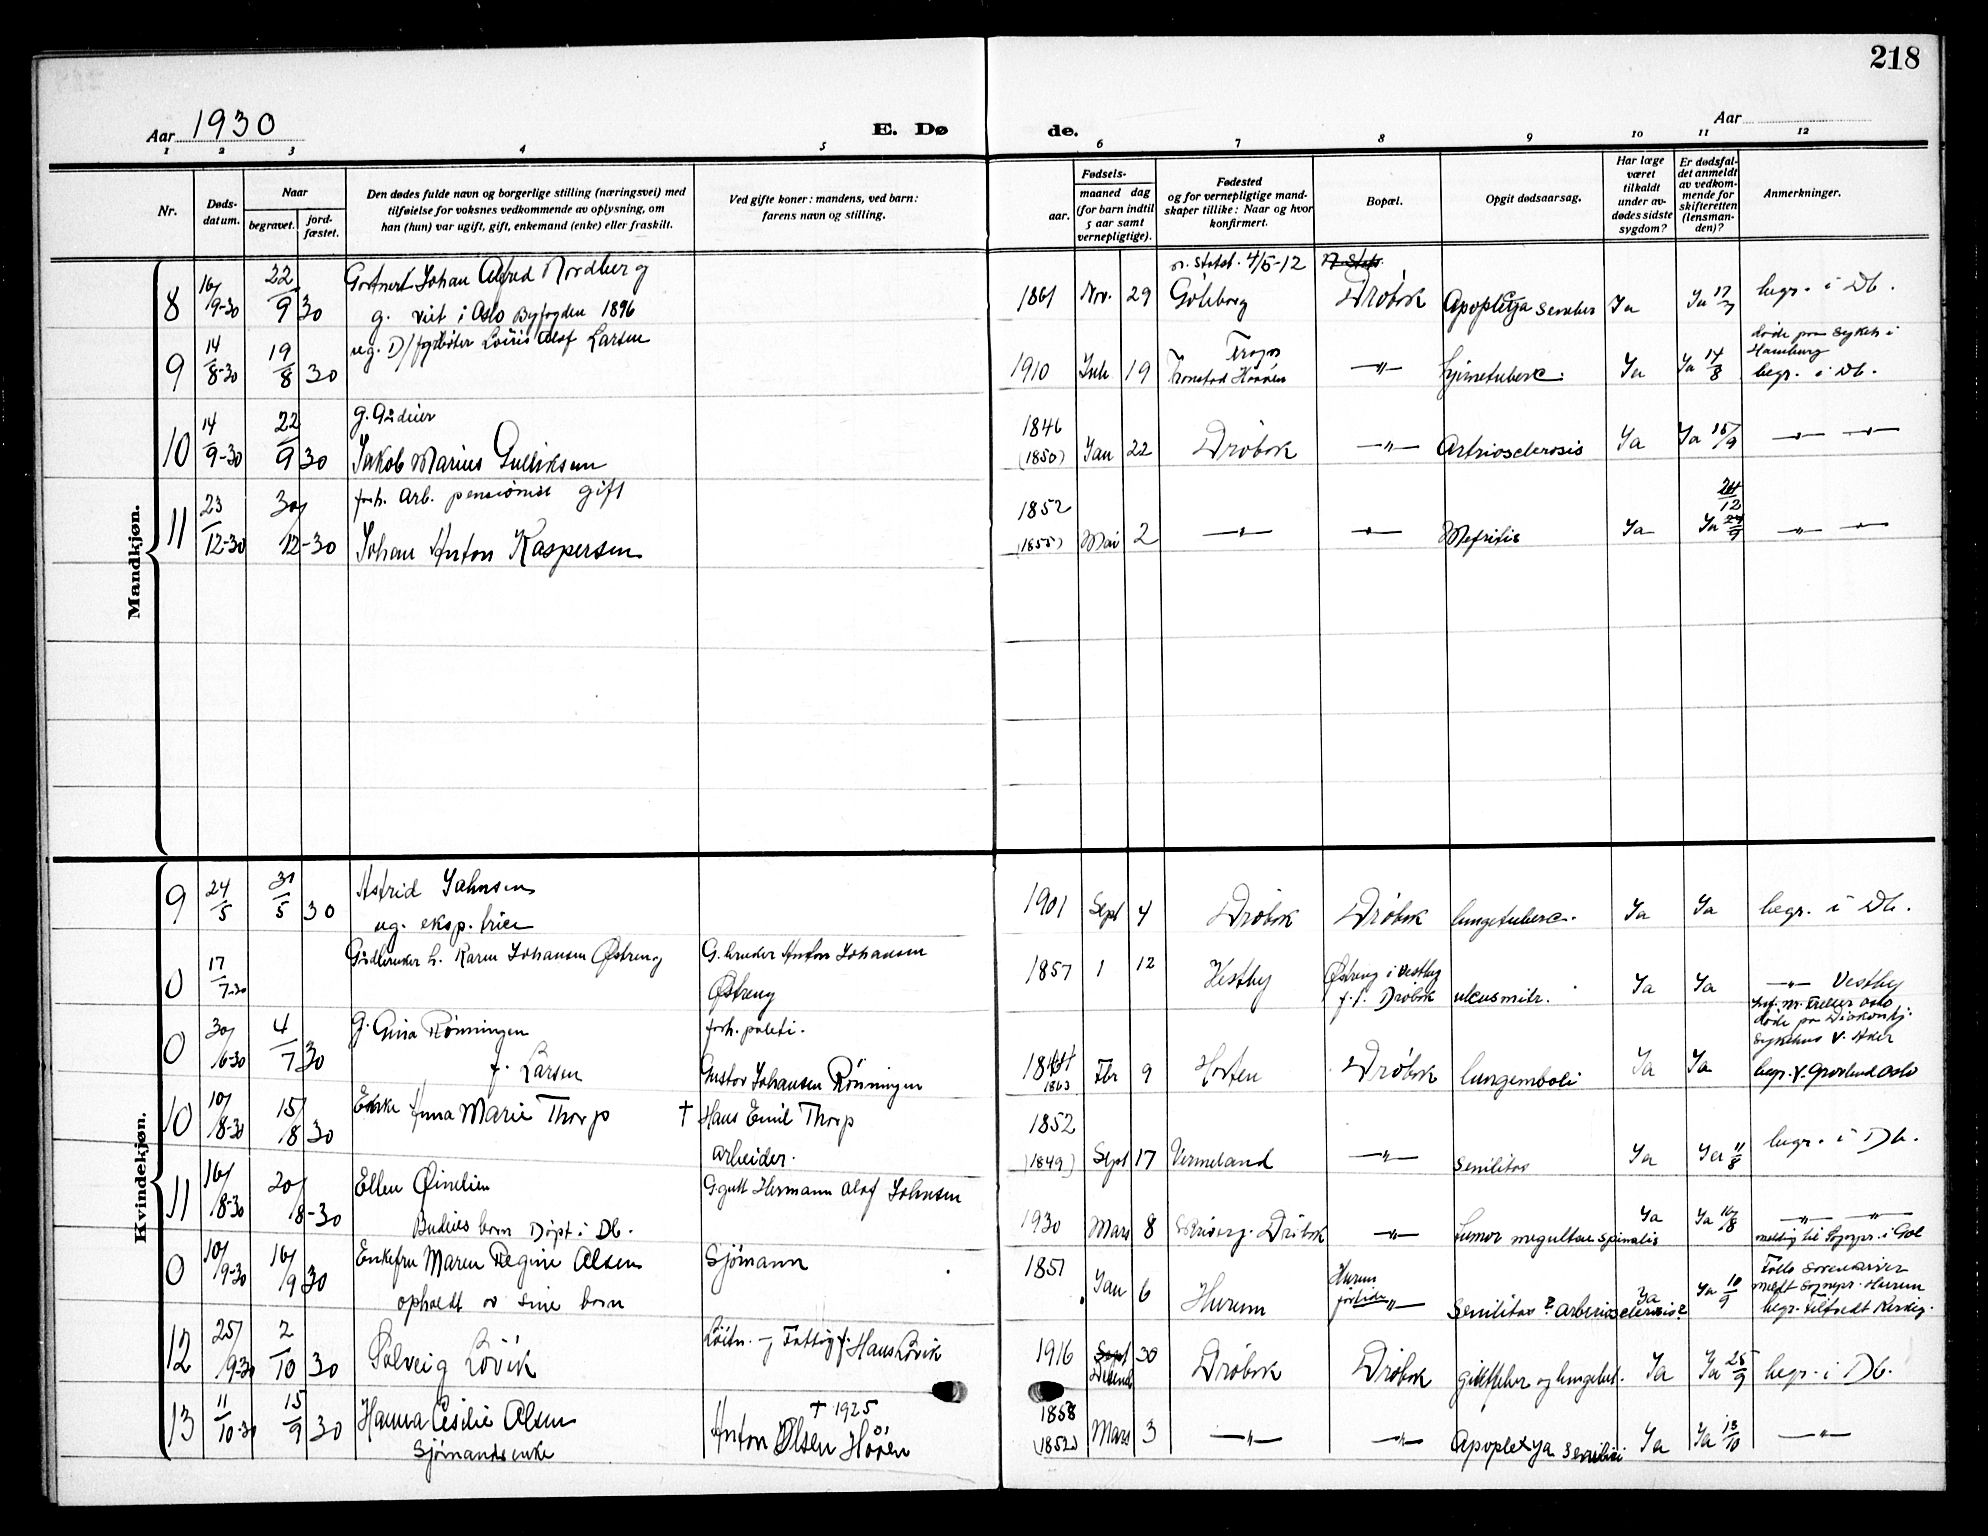 218
Aar 1930
E. Dø
de.
Aar
1 2 3 4 5 6 7 8 9 10 11 12
Nr.
Døds-
datum.
Naar
begravet.
jord-
fæstet.
Den dødes fulde navn og borgerlige stilling (næringsvei) med
tilføielse for voksnes vedkommende av oplysning, om
han (hun) var ugift, gift, enkemand (enke) eller fraskilt.
Ved gifte koner: mandens, ved barn:
farens navn og stilling.
Fødsels-
aar.
maaned dag
(for barn indtil
5 aar samt
vernepligtige).
Fødested
og for vernepligtige mand-
skaper tillike: Naar og hvor
konfirmert.
Bopæl.
Opgit dødsaarsag.
Har læge
været
tilkaldt
under av-
dødes sidste
sygdom?
Er dødsfal-
det anmeldt
av vedkom-
mende for
skifteretten
(lensman-
den)?
Anmerkninger.
Mandkjøn.
8 16/9-30 22/9 30 Gartner Johan Alfred Nordberg
g. viet i Oslo Byfogden 1896
1861 Nov. 29 n. statsb. 4/5-12
Göteborg Drøbak Apoplexya Ja Ja 17/9 begr. i Db.
9 14/8-30 19/8 30 ug. Olaf Larsen
1910 Juli 19 Drøbak —"— hjernetuberc. Ja Ja 14/8 døde paa Sykeh. i
Hamburg
begr. i Db.
10 14/9-30 22/9 30 g. Gårdeier
Jakob Marius Gulliksen
1846
(1850) Jan 22 Drøbak —"— Artriosclerosis Ja Ja 16/9 —"— —"—
11 23/12-30 30/12-30 forh. arb. pensionist gift
Johan Anton Kaspersen
1852
(1855) Mai 2 —"— —"— Nefritis Ja Ja 24/12 —"— —"—
Kvindekjøn.
9 24/5 31/5 30 Astrid Jahnsen
ug. eksp.trice
1901 Sept 4 Drøbak Drøbak lungetuberc. Ja Ja begr. i Db.
0 17/7-30 Gårdbruker h. Karen Johansen Østreng
G.bruker Anton Johansen
Østreng
1857 1 12 Vestby Østreng i Vestby
f.t. Drøbak Ja Ja —"— Vestby
0 30/6-30 4/7 30 g. Gina Rønningen
f. Larsen
forh. politi.
Gustav Johansen Rønningen
1863 Fbr 9 Horten Drøbak lungemboli Ja Ja
døde på Diakonhj.
Sykehus V. Aker
begr. V. Gravlund Oslo
10 10/8-30 15/8 30 Enke Anna Marie Thorp
† Hans Emil Thorp
arbeider.
1852
(1849) Sept 17 Vermeland —"— Senilitas Ja Ja 11/8 begr. i Db.
11 16/8-30 20/8-30 Ellen
barn Døpt i Db.
Hermann Olaf Johnsen
1930 Mars 8 Drøbak —"— Tumor spinalis Ja Ja 16/8 —"— —"—
0 10/9-30 16/9 30 Enkefru Maren Regine Olsen
opholdt av sine barn
Sjømann
1851 Jan 6 Hurum Hurum
—"— Senilitas? arteriosclerosis? Ja Ja 10/9
meldt Sognepr. Hurum
12 25/9-30 2/10 30 Solveig Løvik
Hans Løvik
1916 Sept
Desemb 30 Drøbak Drøbak giktfeber og lungebet. Ja Ja 25/9 begr. i Db.
13 11/10-30 15/9 30 Hanna Cesilie Olsen
Sjømandsenke
† 1925
Anton Olsen Høien
1858
(1852) Mars 3 —"— —"— Apoplexya Ja Ja 13/10 —"—